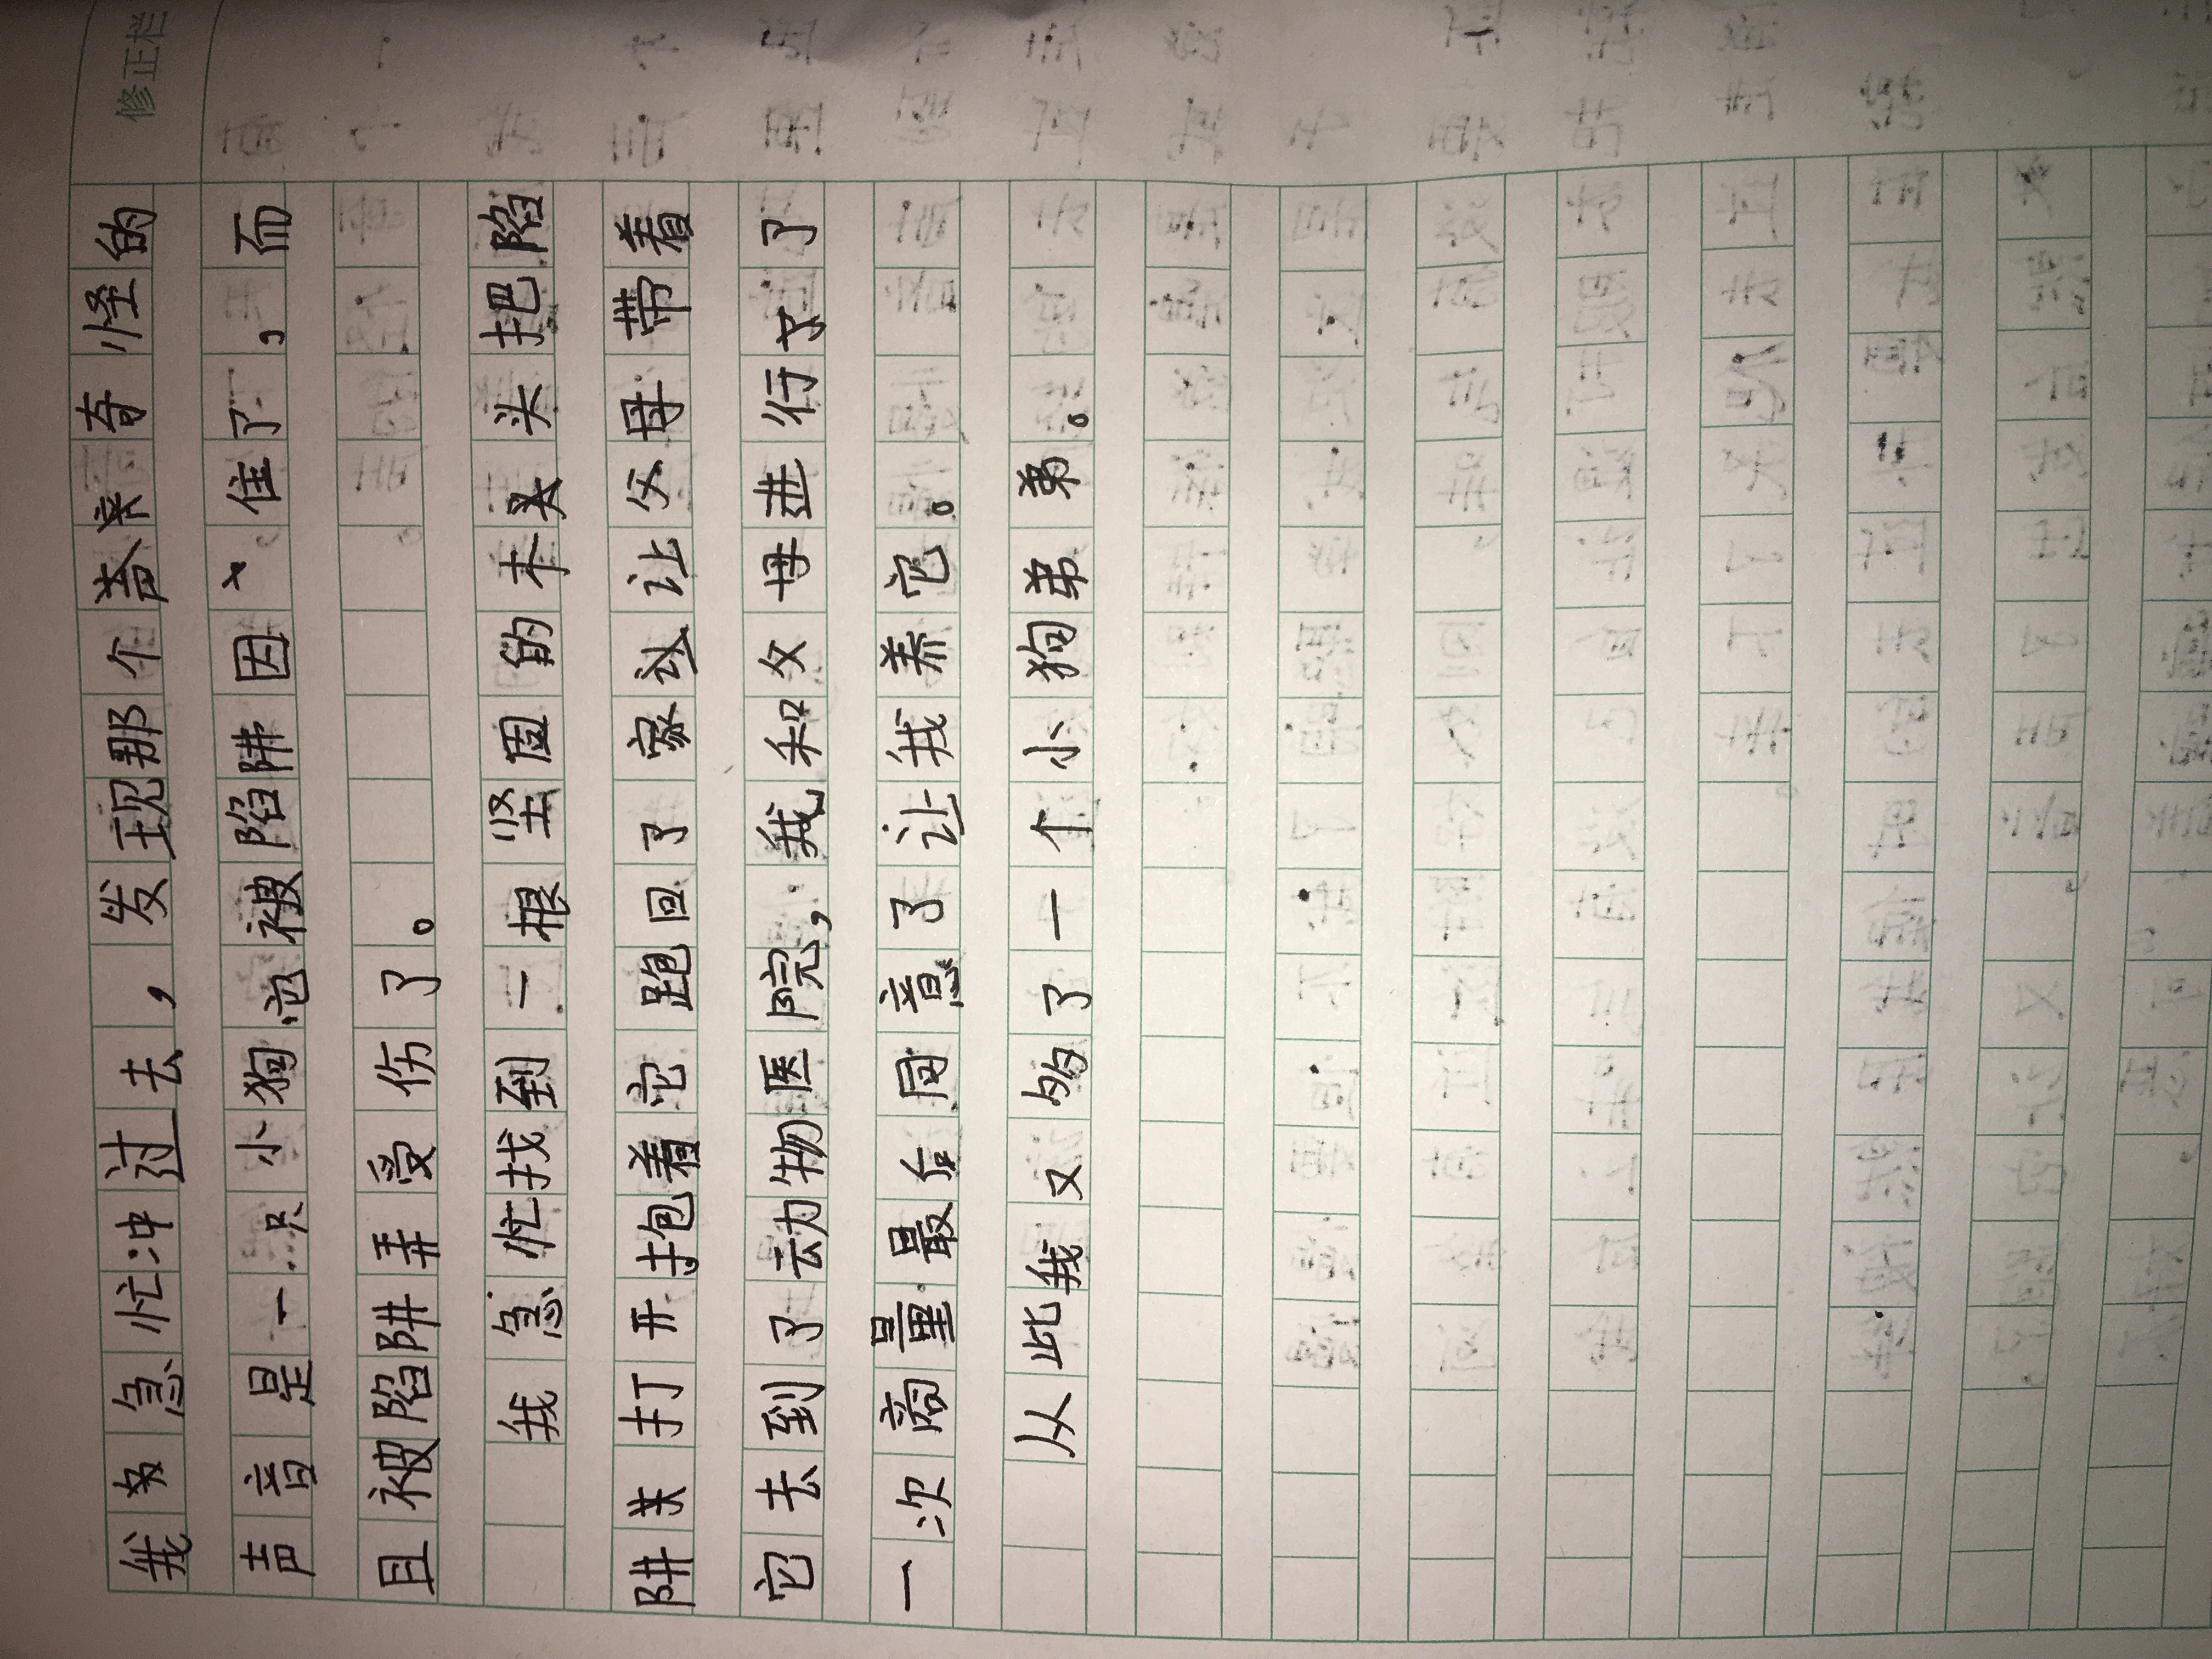 修正栏
我急忙冲过去，发现那个奇怪的
声音是一只小狗它被陷阱困住了，而
且被陷阱弄受伤了。
我急忙找到一根坚固的木头把陷
阱打开抱着它跑回了家让父母带着
它去到了动物医院，我和父母进行了
一次商量最后同意了让我养它。
从此我又多了一个小狗弟弟。